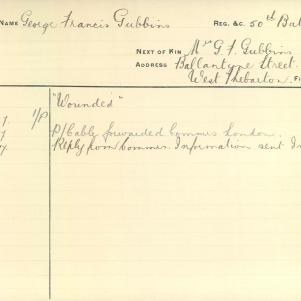 NAME George Francis Gubbins REG. &C. 50th Bat
NEXT OF KIN Mrs G F Gubbins
ADDRESS Ballantyne Street.
West Thebarton.
"Wounded"
P/Cable forwarded Commrs London.
Reply from Commrs. Information sent